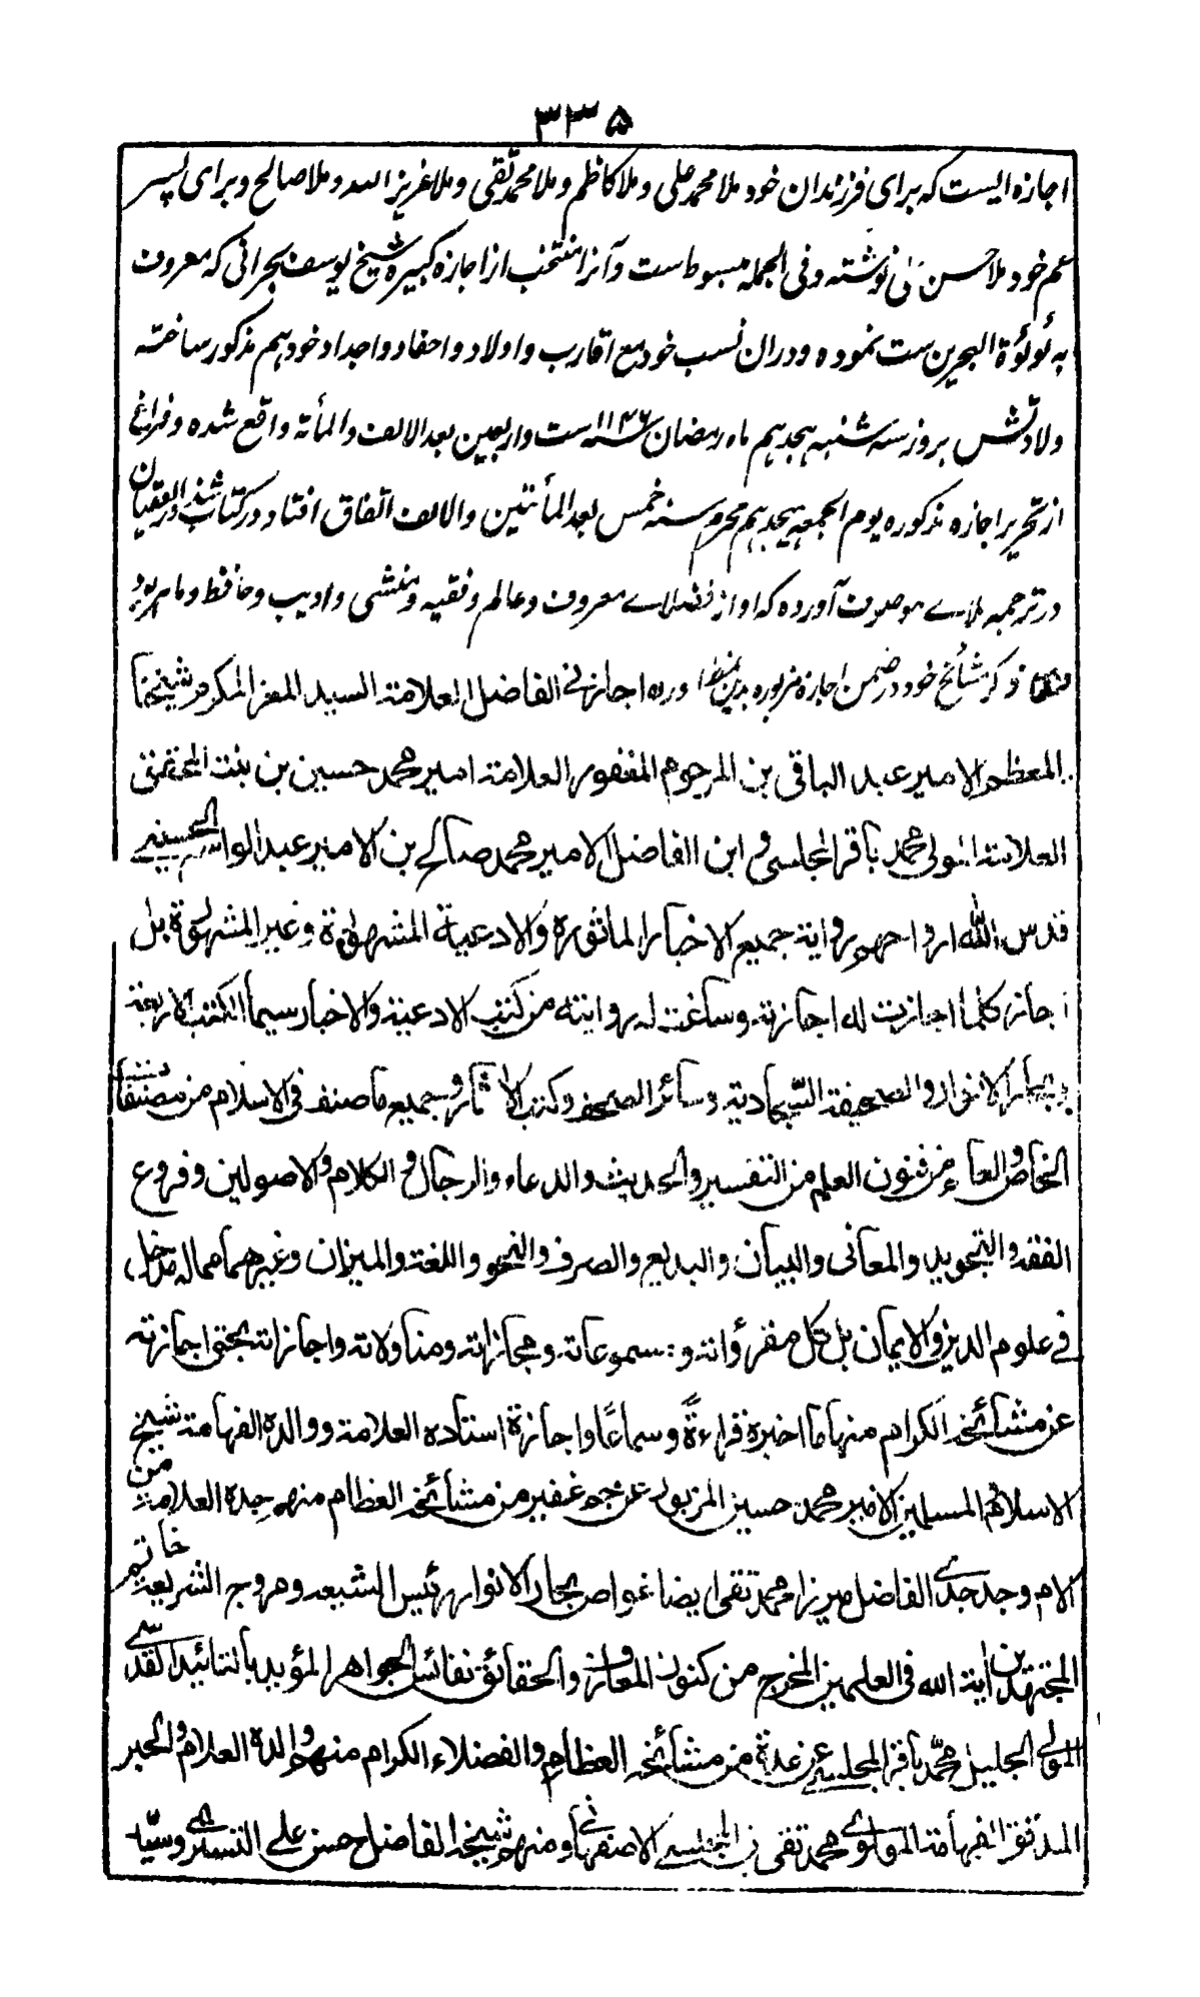 ۳۳۵
اجازه ایست که برای فرزندان خود ملا محمد علی و ملا کاظم و ملا محمد تقی و ملا عزیز الله و ملا صالح و برای پسر
عم خود ملا حسن نوشته و فی الجمله مبسوط ست و آنرا منتخب از اجازه کبیره شیخ یوسف بحرانی که معروف
به لؤلؤة البحرین ست نموده و دران نسب خود مع اقارب و اولاد و احفاد و اجداد خود هم مذکور ساخته
ولادتش بروز سه شنبه هجدهم ماه رمضان سنه ۱۱۴۶ ست واربعین بعد الالف والمأته واقع شده و فراغ
از تحریر اجازه مذکوره یوم الجمعه هیجدهم محرم سنه خمس بعد المأتین والالف اتفاق افتاد و در کتاب شذور العقیان
در ترجمه ملای موصوف آورده که او از فضلای معروف و عالم و فقیه و منشی و ادیب و حافظ و ماهر بود
ذکر مشائخ خود در ضمن اجازه مزبوره بدین نمط آورده اجازنی الفاضل العلامة السید المعز المکرم شیخنا
المعظم الامیر عبد الباقی بن المرحوم المغفور العلامة امیر محمد حسین بن بنت المحقق
العلامة المولی محمد باقر المجلسی و ابن الفاضل الامیر محمد صالح بن الامیر عبد الواسع الحسینی
قدس الله ارواحهم روایة جمیع الاخبار الماثورة والادعیة المشهورة وغیر المشهورة بل
اجاز کلما اجازت له اجازته وساغت له روایته من کتب الادعیة والاخبار سیما الکتب الاربعة
وبحار الانوار والصحیفة السجادیة وسائر الصحف وکتب الآثار وجمیع ما صنف فی الاسلام من مصنفات
الخاص والعام من فنون العلم من التفسیر والحدیث والدعاء والرجال والکلام والاصولین وفروع
الفقه والتجوید والمعانی والبیان والبدیع والصرف والنحو واللغة والمیزان وغیرهما مما له مدخل
فی علوم الدین والایمان بل کل مقرؤاته ومسموعاته ومجازاته ومناولاته واجازاته بحق اجازته
عن مشائخه الکرام منها ما اخبره قراءة وسماعا واجازة استاده العلامة ووالده الفهامة شیخ
الاسلام والمسلمین الامیر محمد حسین المزبور عن جم غفیر من مشائخه العظام منهم جده العلامة من
الام وجد جدی الفاضل میرزا محمد تقی ایضا غواص بحار الانوار رئیس الشیعه ومروج الشریعة خاتم
المجتهدین ایة الله فی العلمین المخرج من کنوز المعانی والحقائق نفائس الجواهر المؤید بالتائید القدسی
المولی الجلیل محمد باقر المجلسی عن عدة من مشائخه العظام والفضلاء الکرام منهم والده العلام والحبر
المدقق الفهامة المولوی محمد تقی المجلسی الاصفهانی ومنهم شیخه الفاضل حسن علی التستری وسید